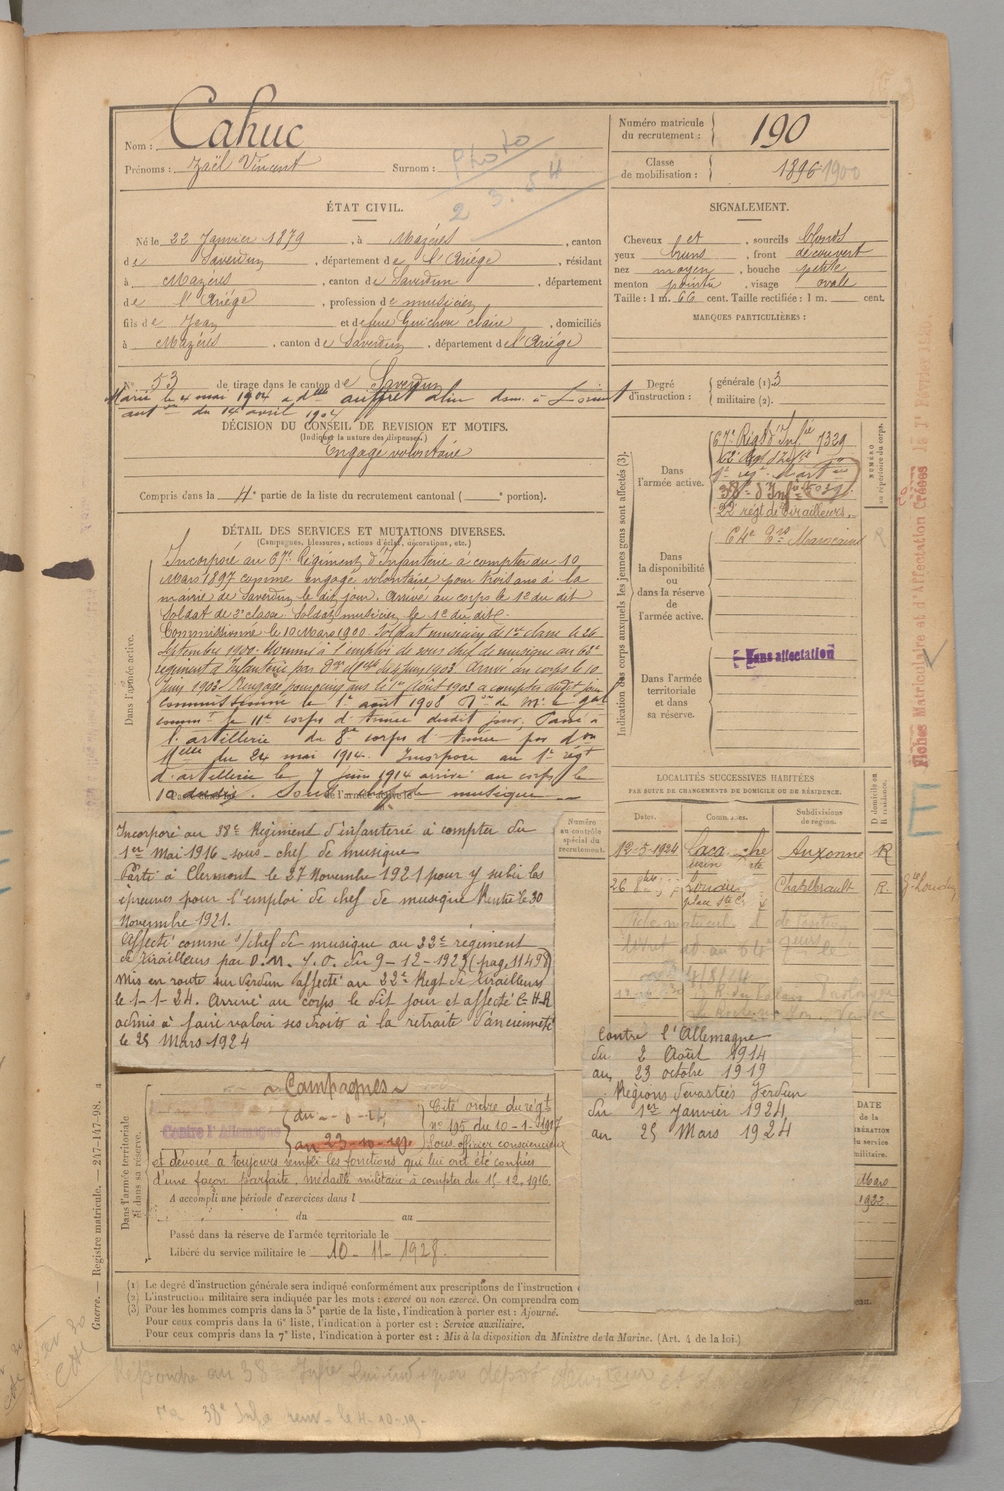 Nom : Cahuc
Prénoms : Zaël Vincent Surnom :
Photo
2 3. 54
Numéro matricule du recrutement : 190
Classe de mobilisation : 1896 1900
ÉTAT CIVIL.
Né le 22 Janvier 1879, à Mazères, canton
de Saverdun, département de l'Ariége, résidant
à Mazères, canton de Saverdun, département
de l'Ariége, profession de musicien
fils de Jean et de feue Guichou Claire, domiciliés
à Mazères, canton de Saverdun, département de l'Ariége
SIGNALEMENT.
Cheveux et, sourcils blonds
yeux bruns, front découvert
nez moyen, bouche petite
menton pointu, visage ovale
Taille : 1 m. 66 cent. Taille rectifiée : 1 m. cent.
MARQUES PARTICULIÈRES :
N° 53 de tirage dans le canton de Saverdun
Marié le 4 mai 1904 a dlle auffret dom. à Lorient
aut du 14 avril 1904
DÉCISION DU CONSEIL DE REVISION ET MOTIFS.
(Indiquer la nature des dispenses.)
Engagé volontaire
Compris dans la 4e partie de la liste du recrutement cantonal ( e portion).
Degré d'instruction : générale (1). 3
militaire (2).
DÉTAIL DES SERVICES ET MUTATIONS DIVERSES.
(Campagnes, blessures, actions d'éclat, décorations, etc.)
Dans l'armée active.
Incorporé au 67e Régiment d'Infanterie à compter du 10
Mars 1897 comme engagé volontaire pour trois ans à la
mairie de Saverdun le dit jour. Arrivé au corps le 12 du dit
Soldat de 2e classe Soldat musicien le 12 du dit.
Commissionné le 10 Mars 1900. Soldat musicien de 1re classe le 26
Septembre 1900. Nommé à l'emploi de sous chef de musique au 62e
régiment d'Infanterie par juin 1903. Arrivé au corps le 10
Juin 1903. Rengagé pour cinq ans le 1er Août 1903 a compter dudit jour
Commissionné le 1er août 1908 de Mr le gal
comm' le 11e corps d'armée dudit jour. Passé à
l'artillerie du 8e corps d'armée par don
Melle du 24 mai 1914. Incorporé au 1er régt
d'artillerie le 7 juin 1914 arrivé au corps le
10 dudit. Sous chef de musique
Indication des corps auxquels les jeunes gens sont affectés (3).
NUMÉRO au répertoire du corps.
Dans l'armée active.
67e Régt d'Infie 7329
62e Regt d'Infie
1er régt
38e d'Infie
22e régt de Tirailleurs.
Dans la disponibilité ou dans la réserve de l'armée active.
64e Marocains
R
Dans l'armée territoriale et dans sa réserve.
Sans affectation
Fiches Matriculaire et d'Affectation Créées
LOCALITÉS SUCCESSIVES HABITÉES
PAR SUITE DE CHANGEMENTS DE DOMICILE OU DE RÉSIDENCE.
Dates. Communes. Subdivision de région. D domicile ou R résidence.
12-5-1924 Auxonne R
26 Loudun Chatellerault R. Gie Loudun
place Ste Cx 4
Numéro au contrôle spécial du recrutement.
Incorporé au 38e Régiment d'infanterie à compter du
1er Mai 1916 sous-chef de musique
Parti à Clermont le 27 Novembre 1921 pour y subir les
épreuves pour l'emploi de chef de musique Rentré le 30
Novembre 1921.
Affecté comme s/chef de musique au 22e régiment
de Tirailleurs par D.M. J.O. du 9-12-1923 (page 11498)
Mis en route sur Verdun affecté au 22e Regt de Tirailleurs
le 1-1-24. Arrivé au corps le dit jour et affecté Cie H.R
admis à faire valoir ses droits à la retraite d'ancienneté
le 25 Mars 1924
Contre l'Allemagne
du 2 Août 1914
au 23 octobre 1919
Régions dévastées Verdun
du 1er Janvier 1924
au 25 Mars 1924
DATE
de la
LIBÉRATION
du service
militaire.
Mars
1922.
Dans l'armée territoriale et dans sa réserve.
Campagnes
Contre l'Allemagne
au 23-10-1919
Cité ordre du régt
n° 195 du 10-1-1917
Sous officier consciencieux
et dévoué a toujours rempli les fonctions qui lui ont été confiées
d'une façon parfaite. médaille militaire à compter du 15.12.1916.
A accompli une période d'exercices dans l
du au
Passé dans la réserve de l'armée territoriale le
Libéré du service militaire le 10-11-1928.
(1) Le degré d'instruction générale sera indiqué conformément aux prescriptions de l'instruction
(2) L'instruction militaire sera indiquée par les mots : exercé ou non exercé. On comprendra
(3) Pour les hommes compris dans la 5e partie de la liste, l'indication à porter est : Ajourné.
Pour ceux compris dans la 6e liste, l'indication à porter est : Service auxiliaire.
Pour ceux compris dans la 7e liste, l'indication à porter est : Mis à la disposition du Ministre de la Marine. (Art. 4 de la loi.)
Guerre. — Registre matricule. — 247-147-98.
Répondre au 38e Infie
38e Infie le 4-10-19-